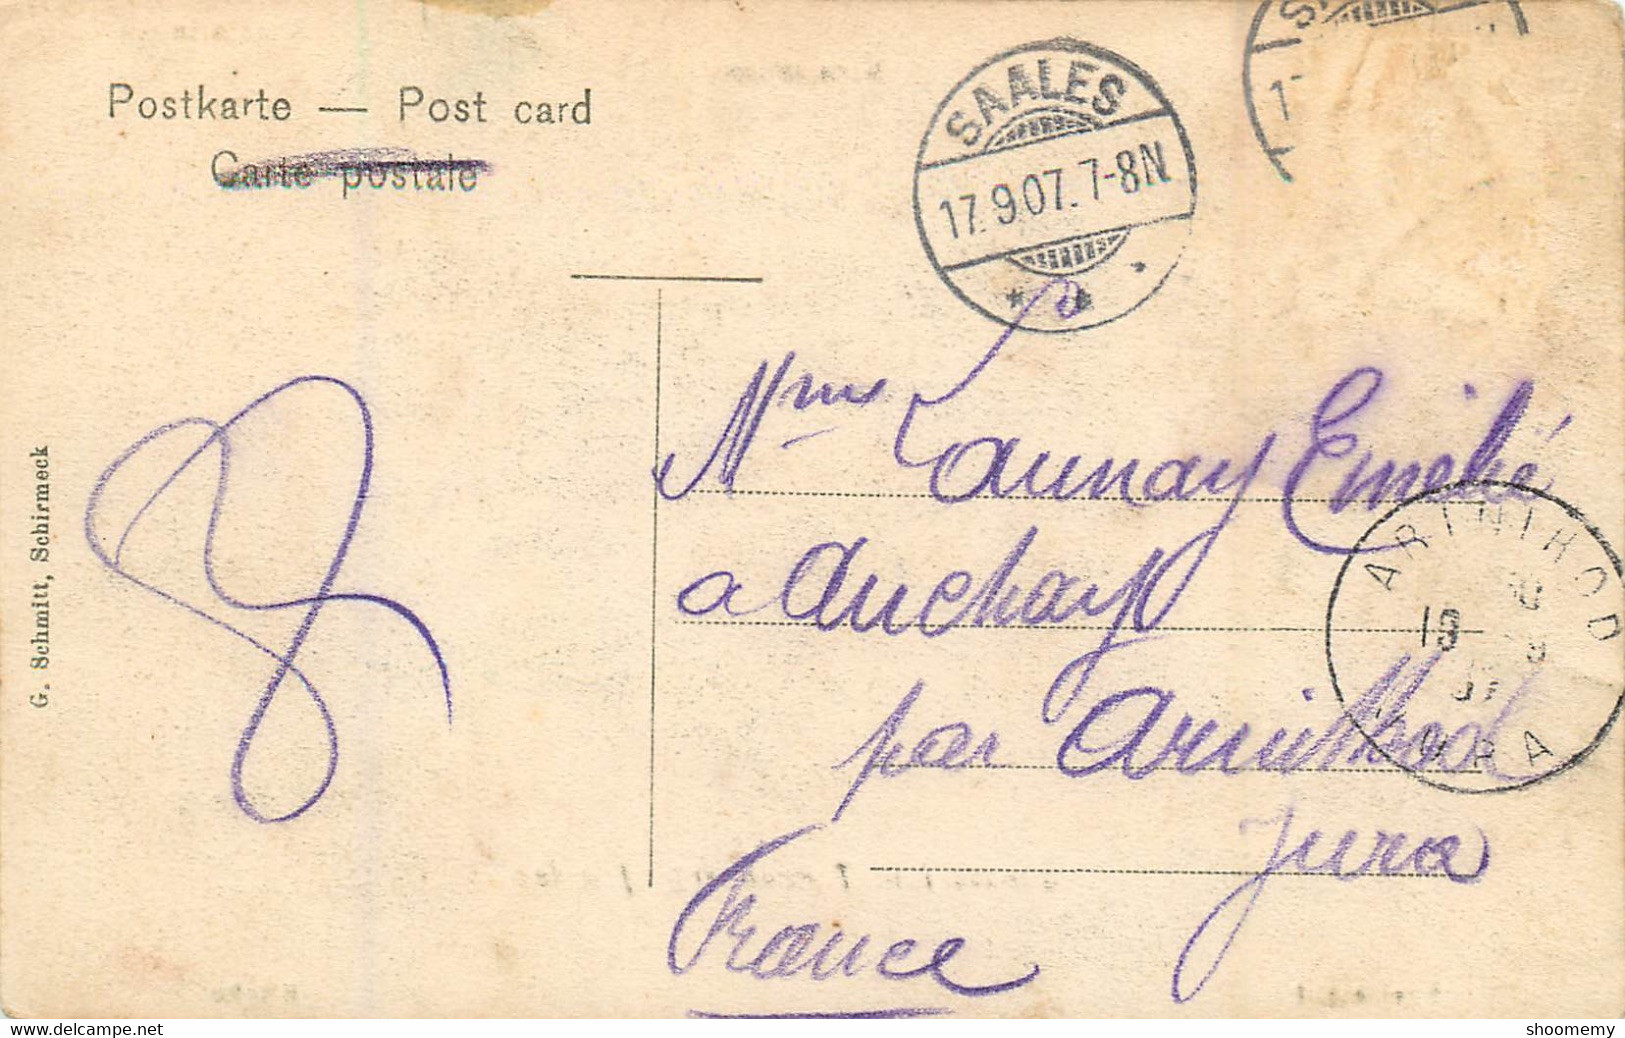 Postkarte — Post card
Carte postale
SAALES
17.9.07. 7-8N
Mme Launay Emélie
a Auchay
par Arinthod
Jura
France
ARINTHOD
19
JURA
G. Schmitt, Schirmeck
delcampe.net
shoomemy